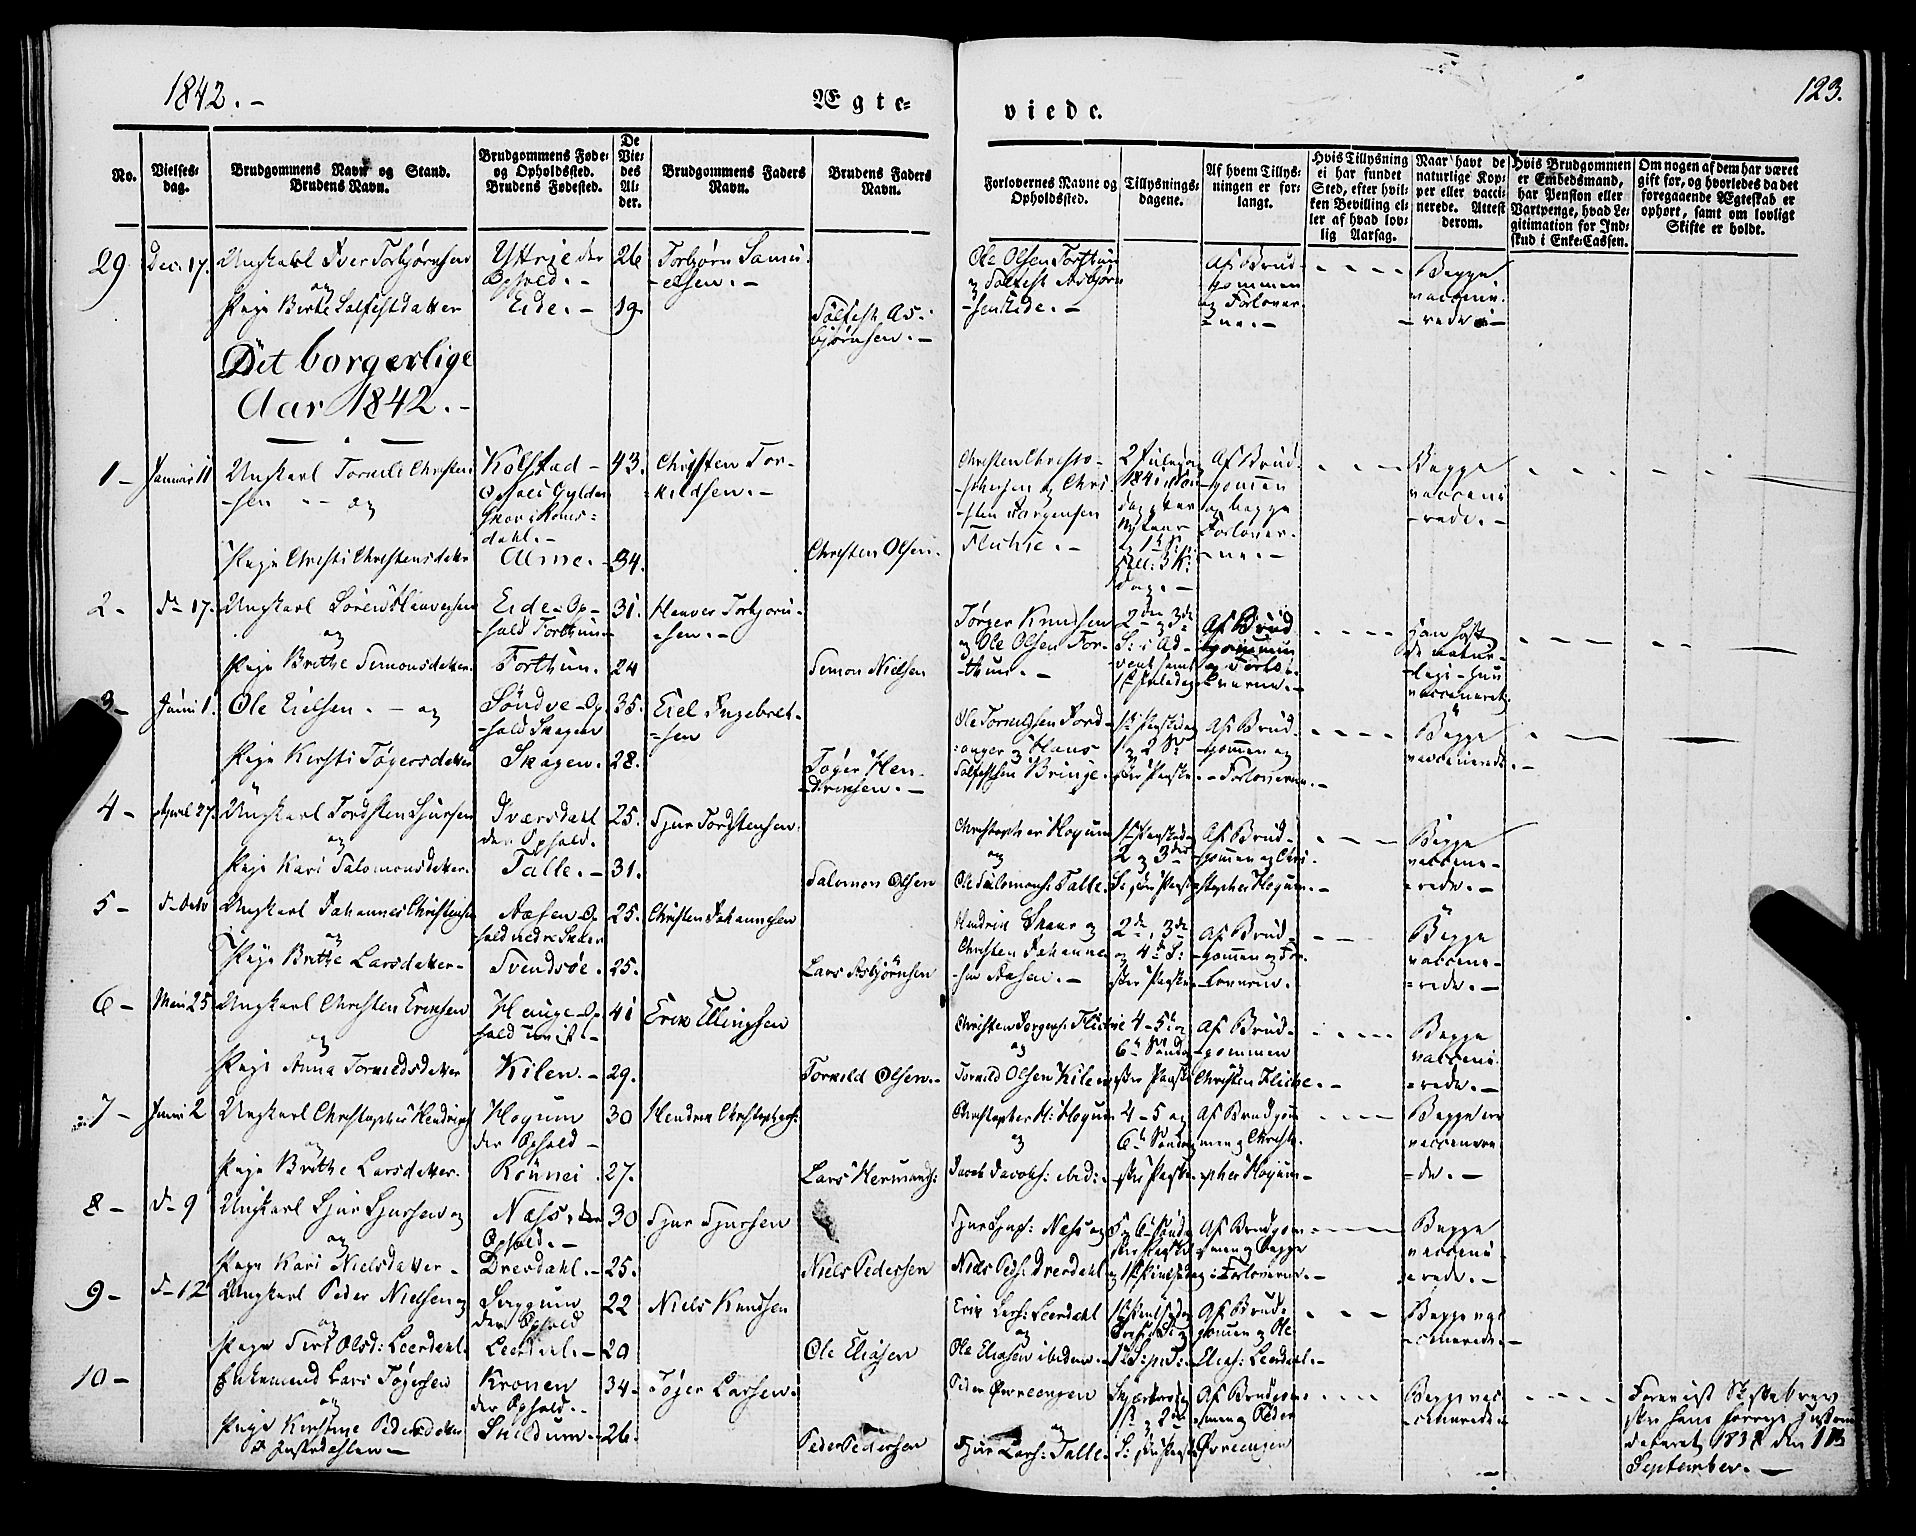 1842. -
Ægte-
viede.
123.
No.
Vielses-
dag.
Brudgommens Navn og Stand.
Brudens Navn.
Brudgommens Føde-
og Opholdssted.
Brudens Fødested.
De
Vie-
des
Al-
der.
Brudgommens Faders
Navn.
Brudens Faders
Navn.
Forlovernes Navne og
Opholdssted.
Tillysnings-
dagene.
Af hvem Tillys-
ningen er for-
langt.
Hvis Tillysning
ei har fundet
Sted, efter hvil-
ken Bevilling el-
ler af hvad lov-
lig Aarsag.
Naar havt de
naturlige Kop-
per eller vacci-
nerede. Attest
derom.
Hvis Brudgommen
er Embedsmand,
har Pension eller
Vartpenge, hvad Le-
gitimation for Ind-
skud i Enke-Cassen.
Om nogen af dem har været
gift før, og hvorledes da det
foregaaende Ægteskab er
ophørt, samt om lovligt
Skifte er holdt.
29 Dec. 17. Ungkarl Iver Torbjørnsen
og
Pige Birte Solfestdatter
Yttrie der
Ophold. -
Eide. -
26
19.
Torbjørn Samu-
-elsen. -
Solfest As-
bjørnsen. -
Ole Olsen Forthun
og Solfest Asbjørn
-sen Eide. -
Af Brud-
gommen
og Forlover-
-ne. -
Begge
vacceni-
- rede -
Det borgerlige
Aar 1842. -
1 - Januar 11 Ungkarl Torkild Christen-
-sen - - og
Pige Christi Christensdatter
Kolstad -
Ophold Gylden
Skov i Roms-
dahl. -
Alme. -
43.
34.
Christen Tor-
-kildsen. -
Christen Olsen.
Christen Christo-
-phersen og Chri-
-sten Jørgensen
Flichie. -
2 Juledag
1841, Søn-
dag efter
Nytaar
og 1ste S:
H: 3 K:
Dag. -
Af Brud-
-gommen
og begge
Forlover-
-ne. -
Begge
vacceni
-rede. -
2 - d- 17. Ungkarl Søren Haaversen
og
Pige Brithe Simonsdatter
Eide - Op-
-hold Forthun -
Forthun.
31.
24
Haaver Torbjørn-
-sen. -
Simon Nielsen
Tørger Knudsen
og Ole Olsen For-
-thun. -
2den og 3de
S: i Ad-
-vent samt
1ste Juledag
Af Brud
gommen
og Forlo-
-verne. -
Han havt
de natur-
-lige - hun
vacceneret.
3 - Juni 1. Ole Eielsen. - og
Pige Kirsti Tøgersdatter
Søndve - Op
-hold Skagen
Skagen.
35.
28.
Eiel Ingebret-
-sen
Tøger Hen-
-driksen. -
Ole Torkildsen Ford-
Hans
Solfestsen Bringe.
1ste Paaskedag
1 og 2 S:
efter Paaske.
Af Brud-
-gommen og
- Forloverne. -
Begge
vaccenerede. -
4 - April 27. Ungkarl Tordsten Sjursen
og
Pige Kari Salomonsdatter.
Iversdahl
der Ophold.
Talle. -
25.
31.
Sjur Tordstensen.
Salomon Olsen
Christopher Hogum
og
Ole Salomons: Talle.
1ste Paaskedag
2 og 3die
S: efter Paaske
Af Brud-
-gommen og Chri-
-stopher Hogum. -
Begge
vaccene-
-rede. -
5 - d- Dito Ungkarl Johannes Christensen
og
Pige Brithe Larsdatter -
Aasen - Op
Svendsøe.
25.
25.
Christen Johannesen
Lars Asbjørnsen
Hendrik Skaar og
Christen Johanne
-sen Aasen. -
2de, 3de
og 4de S:
efter Paaske
Af Brud-
-gommen og For-
-loverne.
Begge
vaccene-
-rede. -
6 - Mai 25 Ungkarl Christen Eriksen
og
Pige Anna Torkildsdatter
Hauge - Op
Kilen. -
41
29.
Erik Ellingsen
Torkild Olsen. -
Christen Jørgens: Flichie
og
Torkild Olsen Kilen
4 - 5te og
6te Søndag
efter Paaske
Af Brud-
-gommen
Christen Flichie. -
Begge
vacceni
-rede. -
7 - Juni 2 Ungkarl Christopher Hendriks:
og
Pige Brithe Larsdatter.
Hogum
der Ophold -
Rønnei
30
27.
Hendrik Christophers:
Lars Hermunds:
Christopher H: Hogum
og
Jacob Jacobs: ibid:
4 - 5 og
6te Søndag
efter Paaske
Af Brudgom
-men og Christo-
-pher Hogum -
Begge ere
vaccenere
-de. -
8 - d- 9 Ungkarl Sjur Sjursen og
og
Pige Kari Nielsdatter -
Næss, der
Ophold. -
Drerdahl. -
30
25.
Sjur Sjursen
Niels Pedersen
Sjur Sjurs: Næss og
Niels Peds: Drerdahl
5 og 6te Sønd
efter Paaske
og 1ste Pintsedag
Af Brudgom-
-men og Begge
Forloverne. -
Begge
vacceni
-rede. -
9 - d- 12 Ungkarl Peder Nielsen og
og
Pige Siri Olsd: Leerdahl.
der Ophold
Leerdahl. -
22
20
Niels Knudsen
Ole Eliasen
Erik Lars: Leerdahl
og
Ole Eliasen ibidem. -
Af Brud-
gommen og Ole
Elias: Leerdahl. -
Begge vac
-cenerede. -
10 - Enkemand Lars Tøgersen
og
Pige Kirstine Pedersdatter
Justedahlen -
Kronen
der Ophold. -
Skildum. -
34 -
26.
Tøger Larsen.
Peder Pedersen
Peder Øvreengen
og
Sjur Lars: Talle.
1ste og 2den
S: efter Paaske
Af Brudgom-
-men og Peder
Øvreengen
Begge vac
-cenerede -
Foreviist Skiftebrev
efter hans forrige Hustru
dateret 1838 den 18
September. -